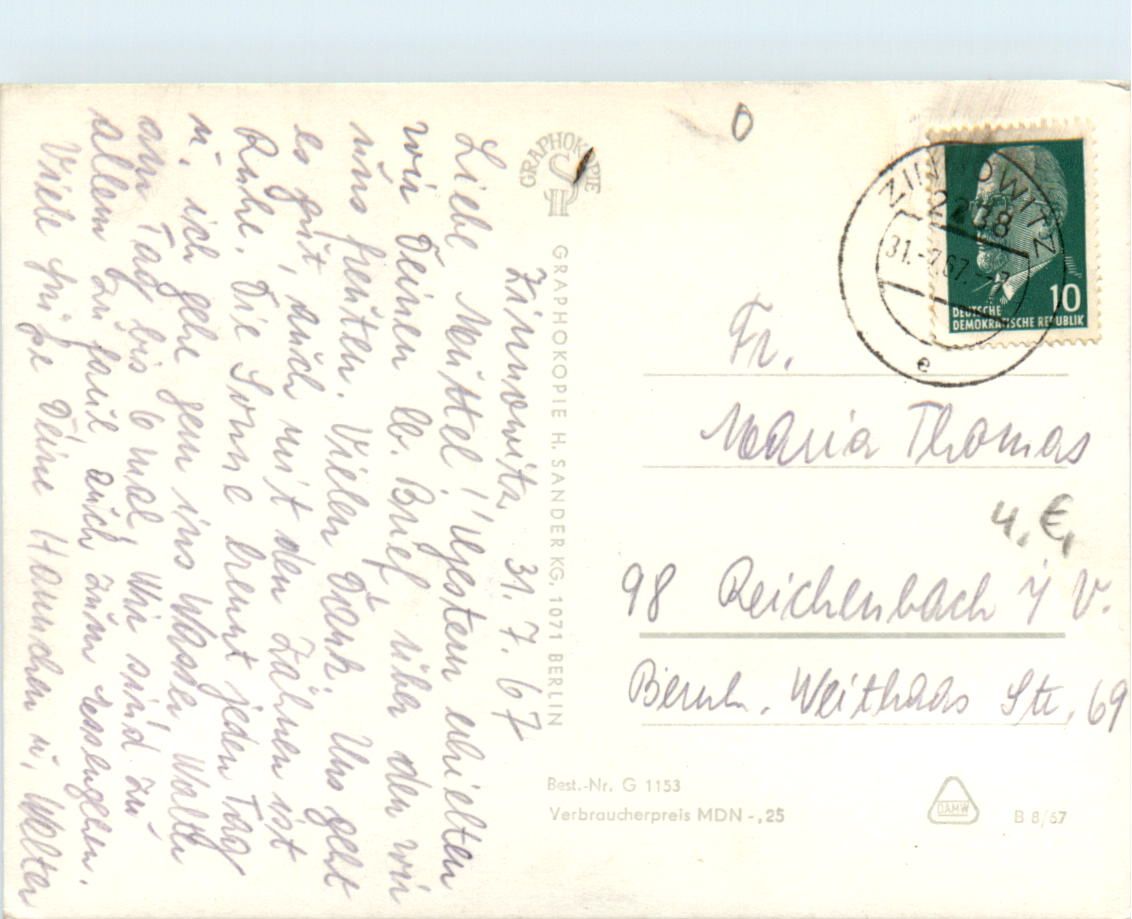 Zinnowitz 31.7.67
Liebe Muttel! Gestern erhielten
wir Deinen lb. Brief über den wir
uns freuten. Vielen Dank. Uns geht
es gut, auch mit den Zähnen ist
Ruhe. Die Sonne brennt jeden Tag
u. ich gehe gern ins Wasser, Walter
am Tag bis 6 mal. Wir sind zu
allem zu faul auch zum Essengehen.
Viele Grüße Deine Hannchen u. Walter
GRAPHOKOPIE
GRAPHOKOPIE H. SANDER KG, 1071 BERLIN
0
ZINNOWITZ
2238
31.-7.67.--7
e
10
DEUTSCHE
DEMOKRATISCHE REPUBLIK
Fr.
Maria Thomas
4.€,
98 Reichenbach i/V.
Bernh. Weithaas Str. 69
Best.-Nr. G 1153
Verbraucherpreis MDN -,25
DAMW
B 8/67